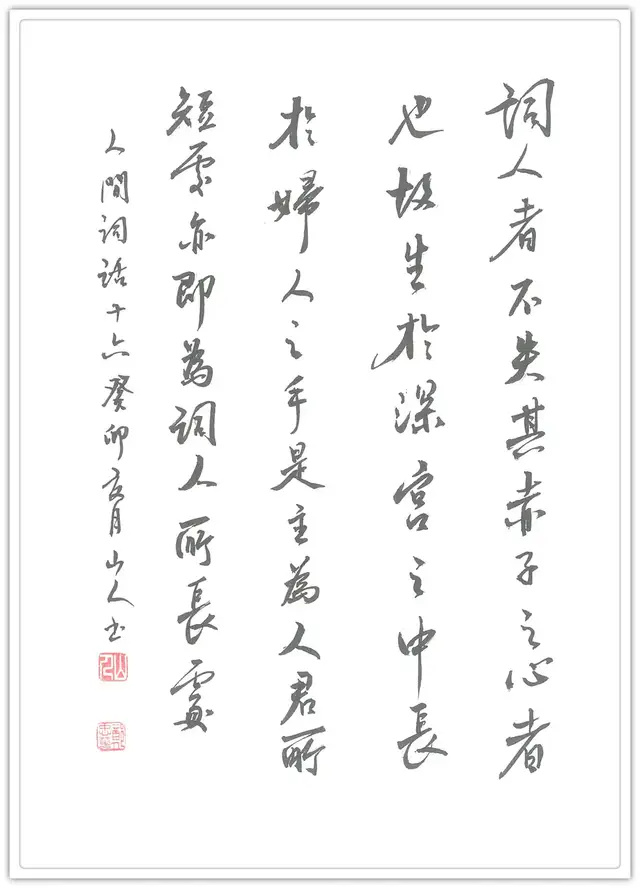 詞人者不失其赤子之心者
也故生於深宮之中長
於婦人之手是主為人君所
短處亦即為詞人所長處
人間詞話十六癸卯亥月山人书